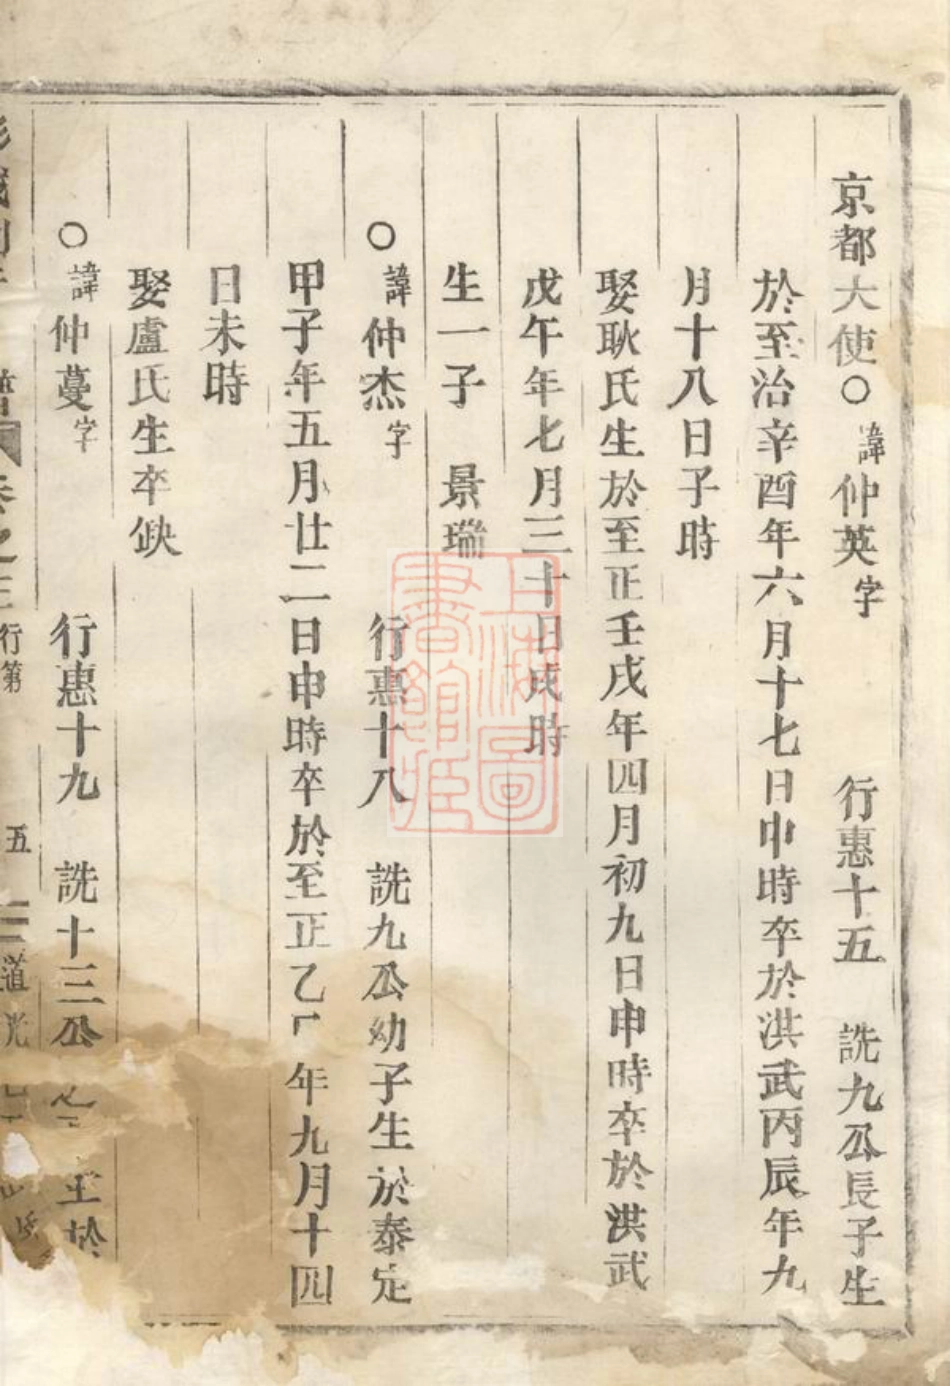 京都大使○諱仲英字 行惠十五 詵九公長子生
於至治辛酉年六月十七日申時卒於洪武丙辰年九
月十八日子時
娶耿氏生於至正壬戌年四月初九日申時卒於洪武
戊午年七月三十日戌時
生一子 景瑞
○諱仲杰字 行惠十八 詵九公幼子生於泰定
甲子年五月廿二日申時卒於至正乙年九月十四
日未時
娶盧氏生卒缺
○諱仲蔓字 行惠十九 詵十三公 生於
卷之三 行第 五 道光
上海圖書館藏